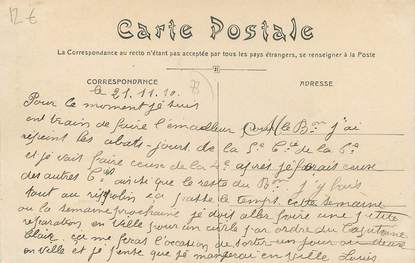 12 €
Carte Postale
La Correspondance au recto n'étant pas acceptée par tous les pays étrangers, se renseigner à la Poste
CORRESPONDANCE
ADRESSE
le 21.11.10.
Pour le moment je suis
ent train de faire l'émailleur le Bon j'ai
repeint les abats-jours de la 5e Cie de la 6e
et je vait faire ceuse de la 4e après je ferais ceuse
des autres Cies ainsi que le reste du Bon j'y fais
tout au ripolin ça passe le temps cette semaine
ou la semaine prochaine je dois aller faire une petite
réparation en ville pour un par ordre du Capitaine
ça me feras l'occasion de sortir un jour ou deux
en ville et je pense que je mangerai en ville Louis